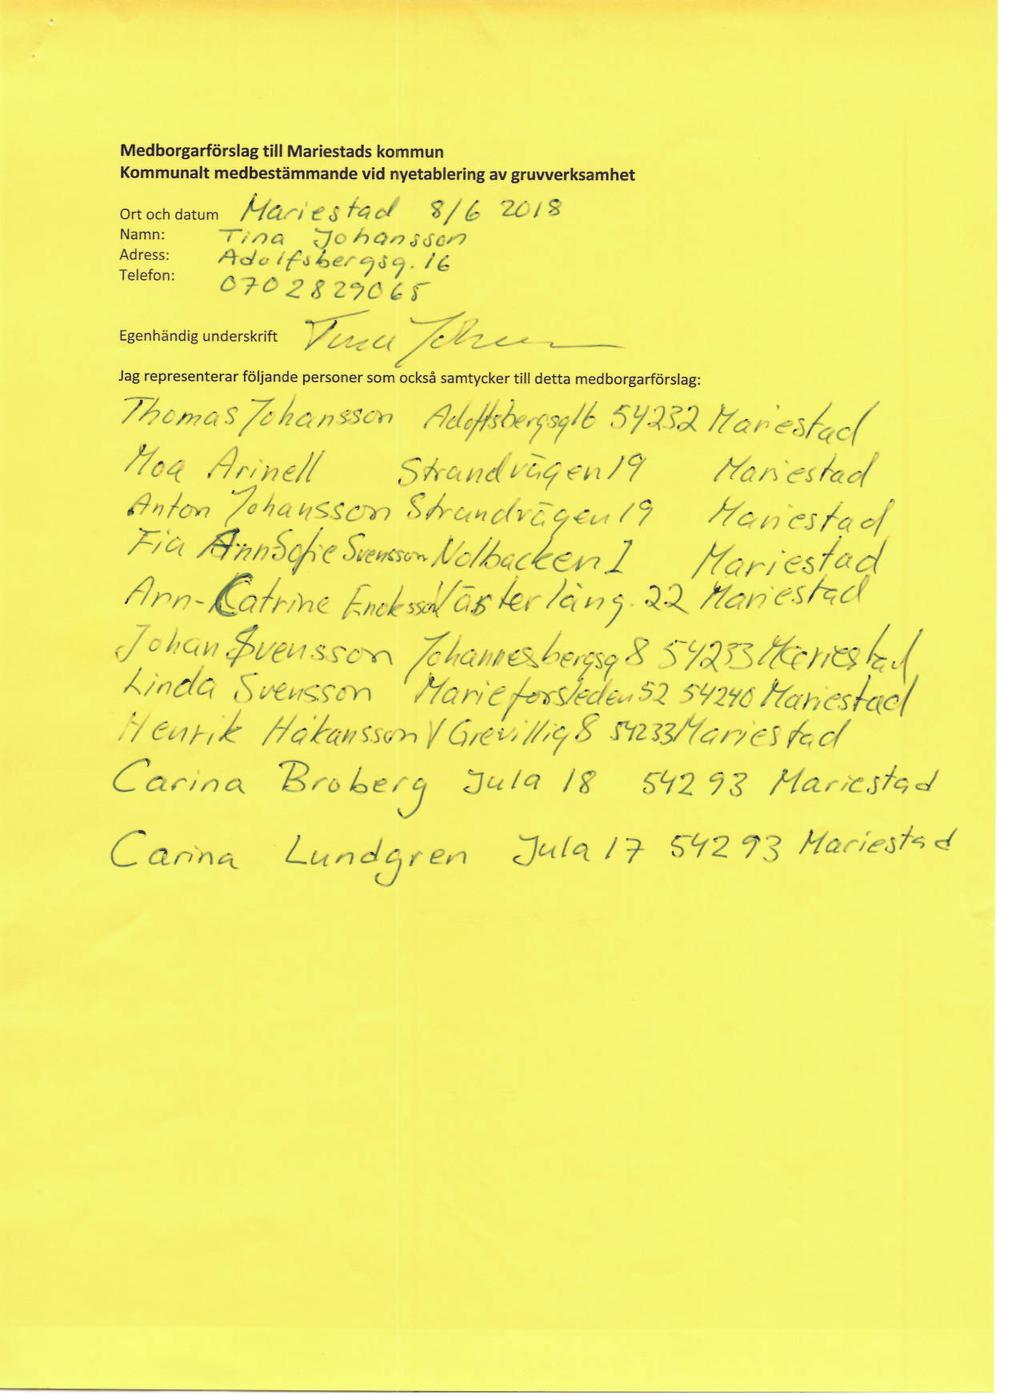 Medborgarförslag till Mariestads kommun
Kommunalt medbestämmande vid nyetablering av gruvverksamhet
Ort och datum Mariestad 8/6 2018
Namn: Tina Johansson
Adress: Adolfsbergsg. 16
Telefon: 0702829065
Egenhändig underskrift Tina Johansson
Jag representerar följande personer som också samtycker till detta medborgarförslag:
Thomas Johansson Adolfsbergsg16 54232 Mariestad
Moa Arinell Strandvägen 19 Mariestad
Anton Johansson Strandvägen 19 Mariestad
Fia AnnSofie Svensson Nolbacken 1 Mariestad
Ann-Catrine Enoksson Västerlång. 22 Mariestad
Johan Svensson Johannesbergsg 8 54233 Mariestad
Linda Svensson Marieforsleden 52 54240 Mariestad
Henrik Håkansson V Grevillig 8 54233 Mariestad
Carina Broberg Jula 18 542 93 Mariestad
Carina Lundgren Jula 17 542 93 Mariestad